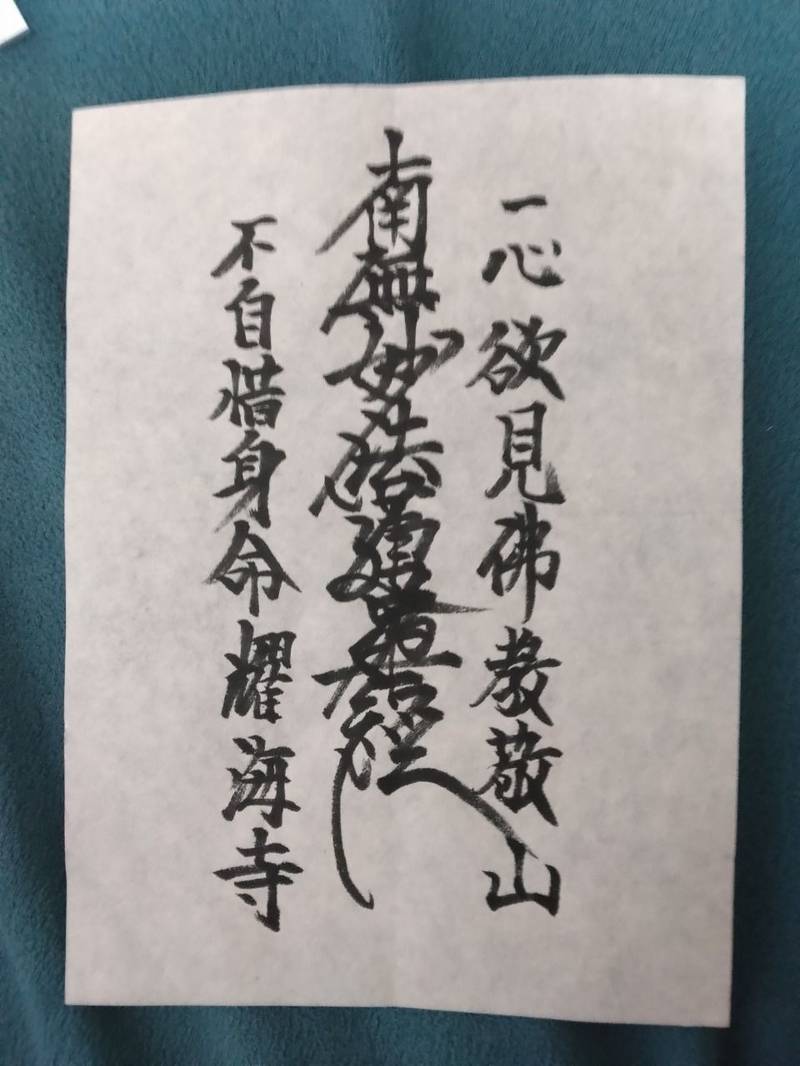 一心欲見佛教敬山
南無妙法蓮華経
不自惜身命耀海寺